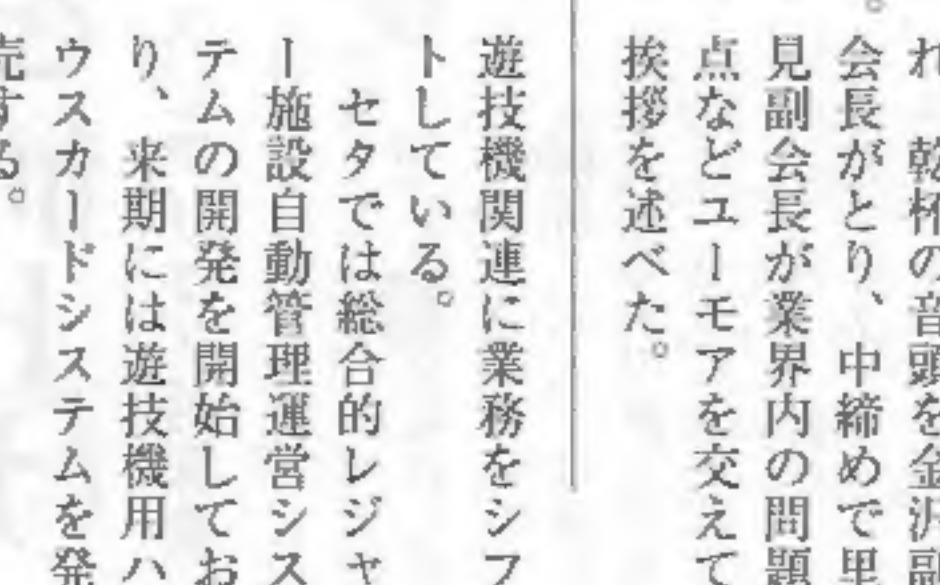 れ、乾杯の音頭を金沢副
会長がとり、中締めで里
見副会長が業界内の問題
点などユーモアを交えて
挨拶を述べた。
遊技機関連に業務をシフ
トしている。
セタでは総合的レジャ
ー施設自動管理運営シス
テムの開発を開始してお
り、来期には遊技機用ハ
ウスカードシステムを発
売する。